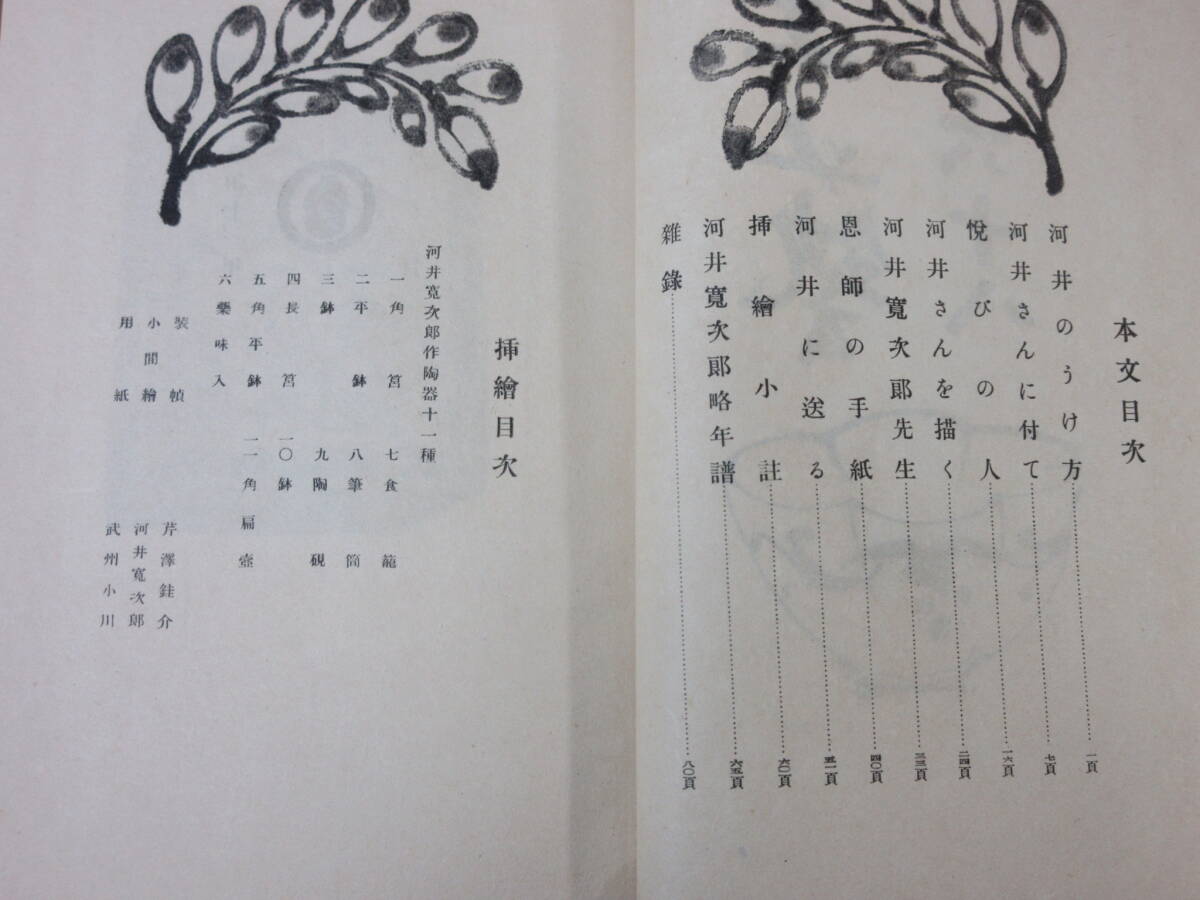 本文目次
河井のうけ方……一頁
河井さんに付て……七頁
悅びの人……一六頁
河井さんを描く……二四頁
河井寬次郎先生……三三頁
恩師の手紙……四〇頁
河井に送る……五一頁
挿繪小註……六〇頁
河井寬次郎略年譜……六五頁
雜錄……八〇頁
挿繪目次
河井寬次郎作陶器十一種
一角筥 七食籠
二平鉢 八筆筒
三鉢 九陶硯
四長筥 一〇鉢
五角平鉢 一一角扁壺
六藥味入
裝幀 芹澤銈介
小間繪 河井寬次郎
用紙 武州小川